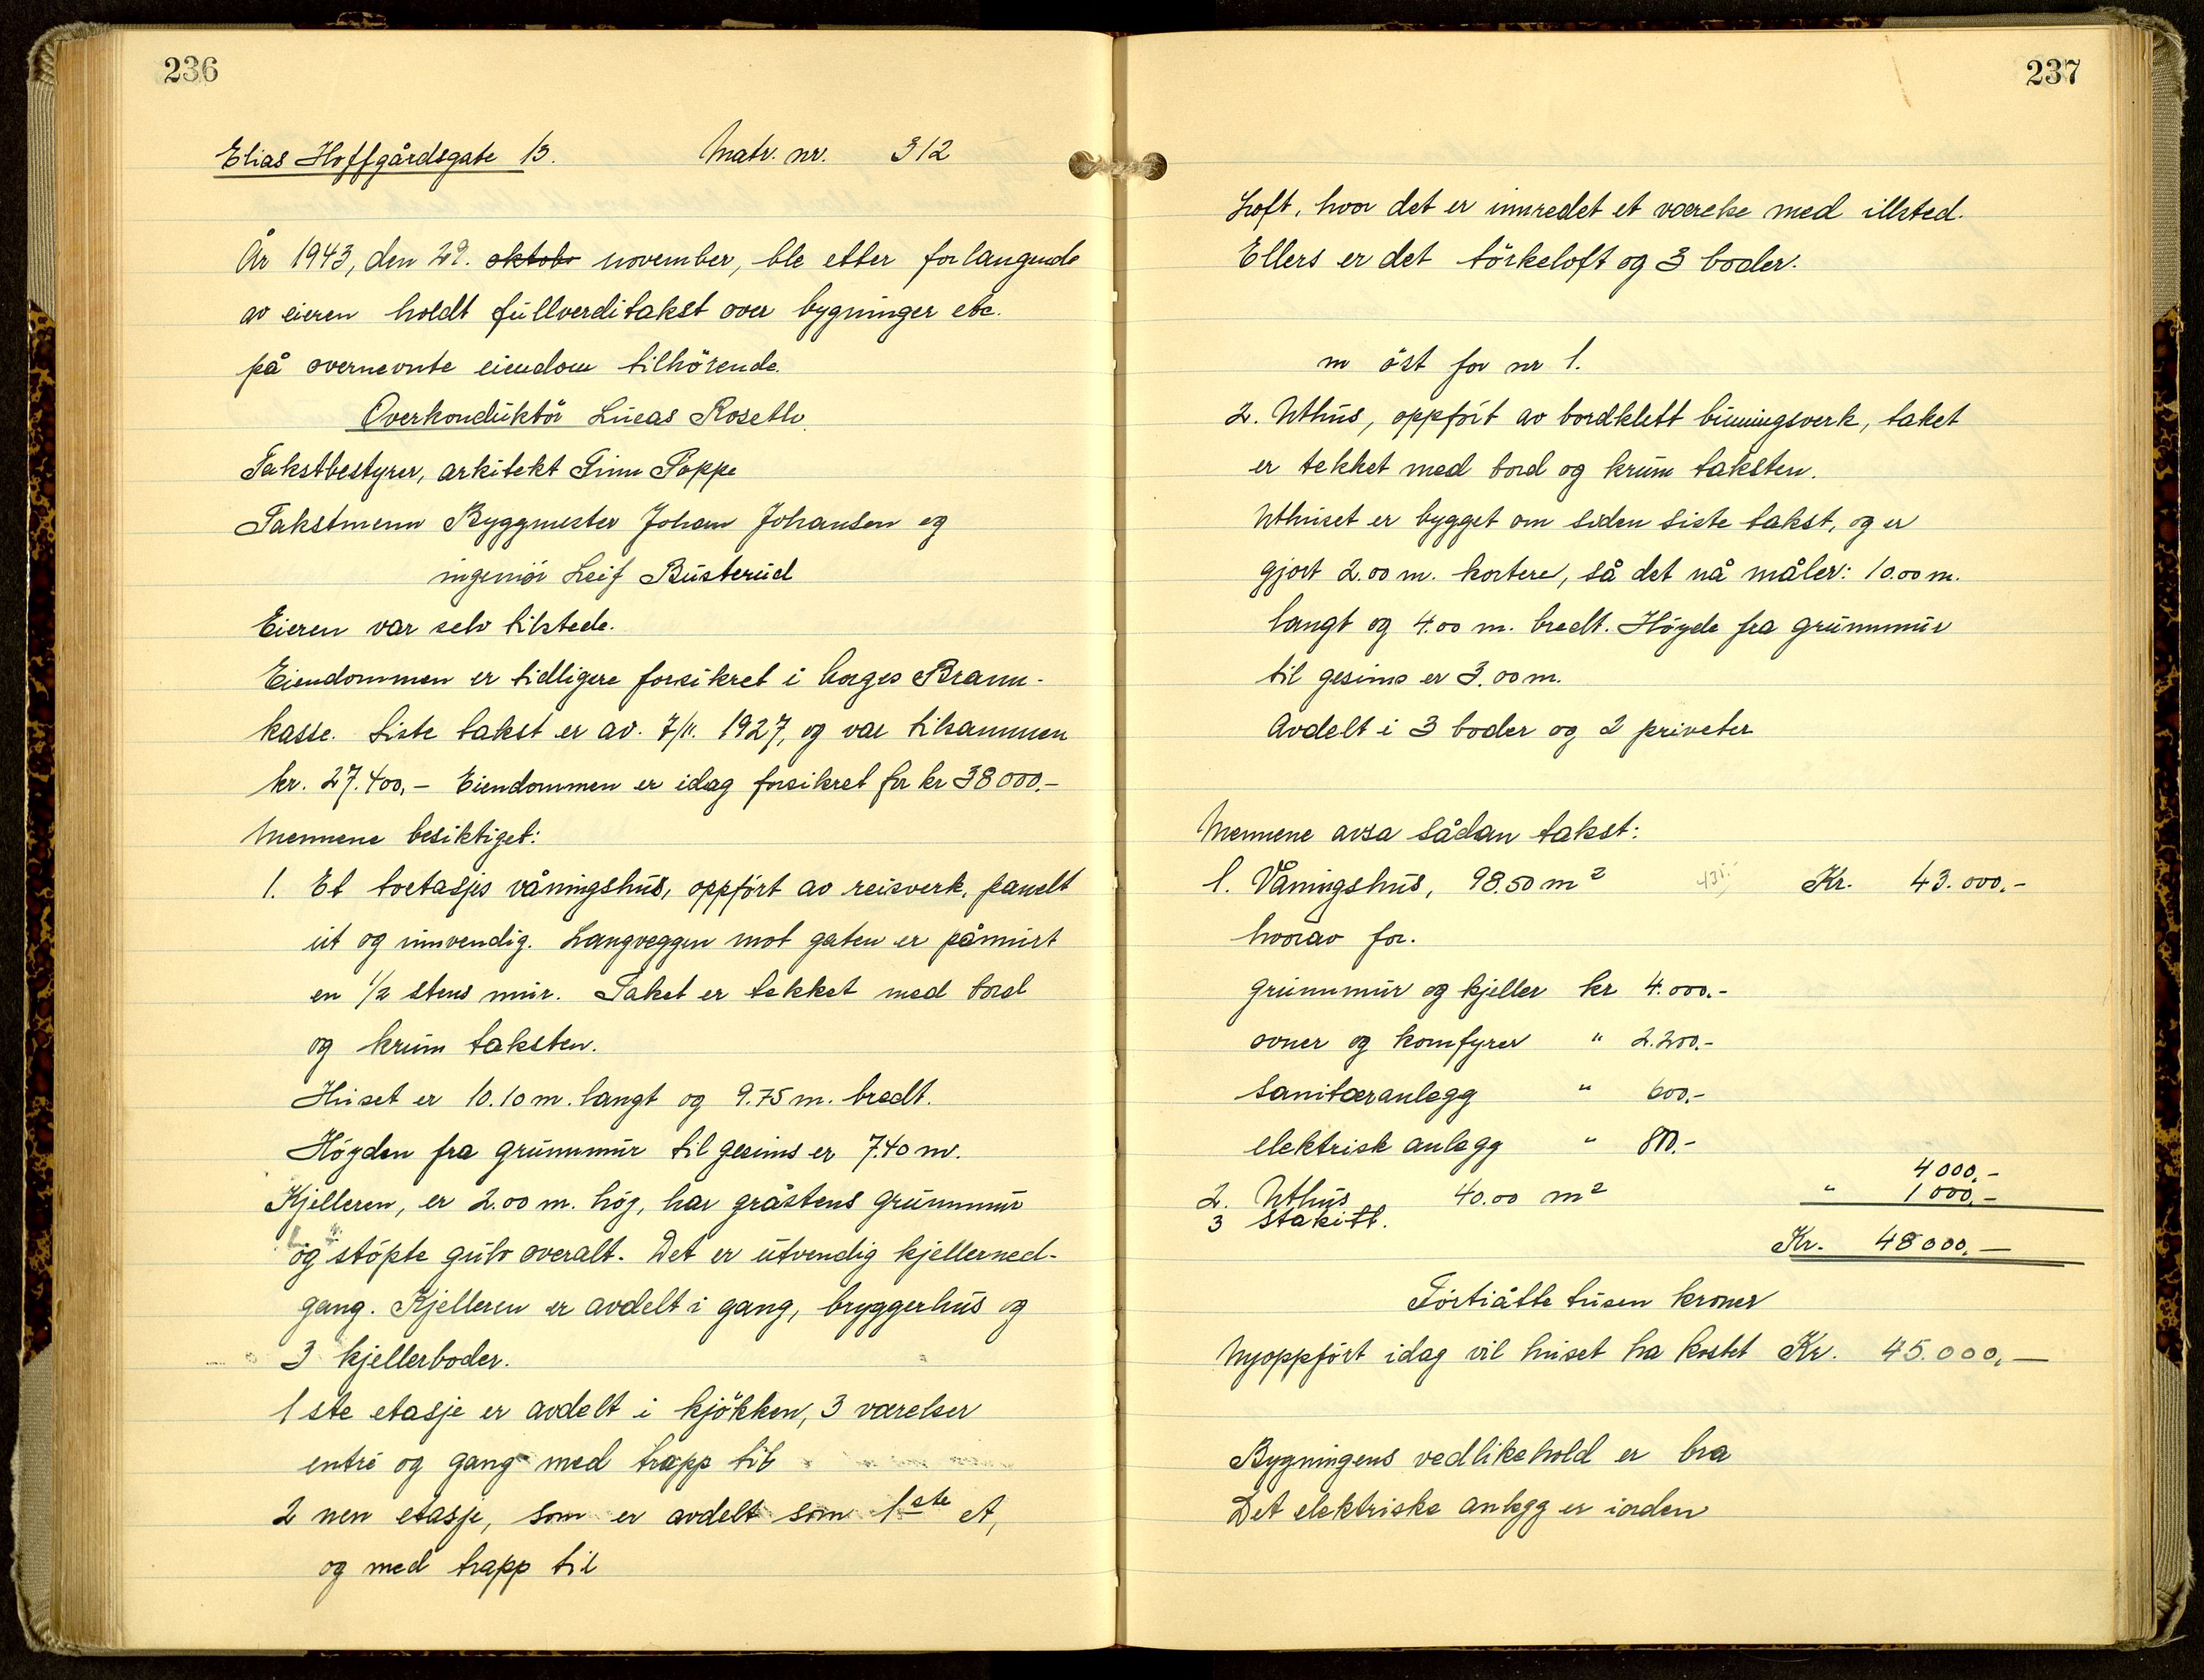 236
Elias Hoffgårdsgate 13. Matr. nr. 312
År 1943, den 29. oktobr november, ble etter forlangende
av eieren holdt fullverditakst over bygninger etc.
på overnevnte eiendom tilhörende.
Overkonduktör Lucas Roseth.
Takstbestyrer, arkitekt Finn Poppe
Takstmenn Byggmester Johan Johansen og
ingeniör Leif Busterud
Eieren var selv tilstede.
Eiendommen er tidligere forsikret i Norges Brann-
kasse. Siste takst er av. 7/11. 1927, og var tilsammen
kr. 27.400,- Eiendommen er idag forsikret for kr 38000.-
Mennene besiktiget:
1. Et toetasjes våningshus, oppfört av reisverk, panelt
ut og innvendig. Langveggen mot gaten er påmurt
en 1/2 stens mur. Taket er tekket med bord
og krum taksten.
Huset er 10.10 m. langt og 9.75 m. bredt.
Höyden fra grunnmur til gesims er 7.40 m.
Kjelleren, er 2.00 m. höy, har gråstens grunnmur
og stöpte gulv overalt. Det er utvendig kjellerned-
gang. Kjelleren er avdelt i gang, bryggerhus og
3 kjellerboder.
1 ste etasje er avdelt i kjökken, 3 værelser
entré og gang med trapp til
2 nen etasje, som er avdelt som 1ste et,
og med trapp til
237
Loft, hvor det er innredet et værelse med illsted.
Ellers er det törkeloft og 3 boder.
m öst for nr 1.
2. Uthus, oppfört av bordklett binningsverk, taket
er tekket med bord og krum taksten.
Uthuset er bygget om siden siste takst, og er
gjort 2.00 m. kortere, så det nå måler: 10.00 m.
langt og 4.00 m. bredt. Höyde fra grunnmur
til gesims er 3.00 m.
Avdelt i 3 boder og 2 priveter
Mennene avsa sådan takst:
1. Våningshus, 98.50 m² Kr. 43.000.-
hvorav for.
grunnmur og kjeller kr 4.000.-
ovner og komfyrer " 2.200.-
sanitæranlegg " 600.-
elektrisk anlegg " 800.-
2. Uthus 40.00 m² 4000.-
3 Stakitt. " 1000.-
Kr. 48000.-
Förtiåtte tusen kroner
Nyoppfört idag vil huset ha kostet Kr. 45.000,-
Bygningens vedlikehold er bra
Det elektriske anlegg er iorden